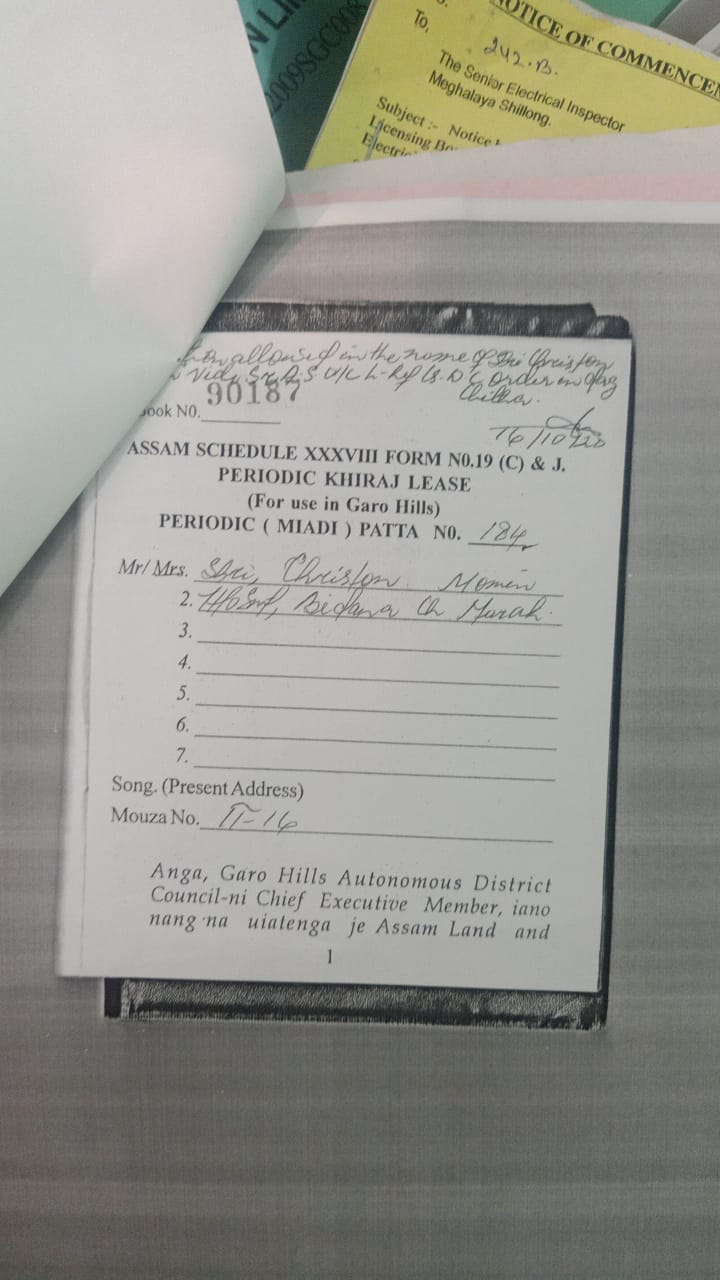 N LI
2009SGC008
NOTICE OF COMMENCEM
To,
242.B.
The Senior Electrical Inspector
Meghalaya Shillong.
Subject :- Notice
Licensing Bo
Electric
allowed in the name of Shri Christon
Order in
Chitha.
90187
Book N0.
16/10/20
ASSAM SCHEDULE XXXVIII FORM N0.19 (C) & J.
PERIODIC KHIRAJ LEASE
(For use in Garo Hills)
PERIODIC ( MIADI ) PATTA N0. 184
Mr/ Mrs. Shri, Christon Momin
2. Ch Marak.
3.
4.
5.
6.
7.
Song. (Present Address)
Mouza No. II-16
Anga, Garo Hills Autonomous District
Council-ni Chief Executive Member, iano
nang·na uiatenga je Assam Land and
1